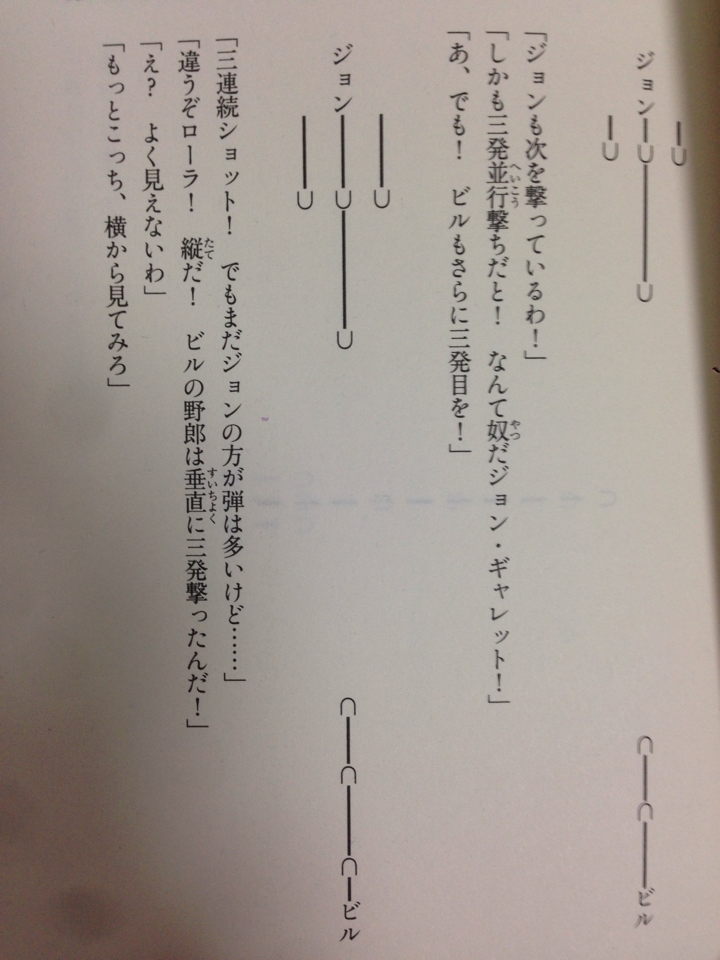 ―⊃
ジョン―⊃―――⊃　　⊂―⊂――ビル
―⊃
「ジョンも次を撃っているわ！」
「しかも三発並行撃ちだと！　なんて奴だジョン・ギャレット！」
「あ、でも！　ビルもさらに三発目を！」
――⊃
ジョン――⊃―――⊃　　⊂―⊂――⊂―ビル
――⊃
「三連続ショット！　でもまだジョンの方が弾は多いけど……」
「違うぞローラ！　縦だ！　ビルの野郎は垂直に三発撃ったんだ！」
「え？　よく見えないわ」
「もっとこっち、横から見てみろ」